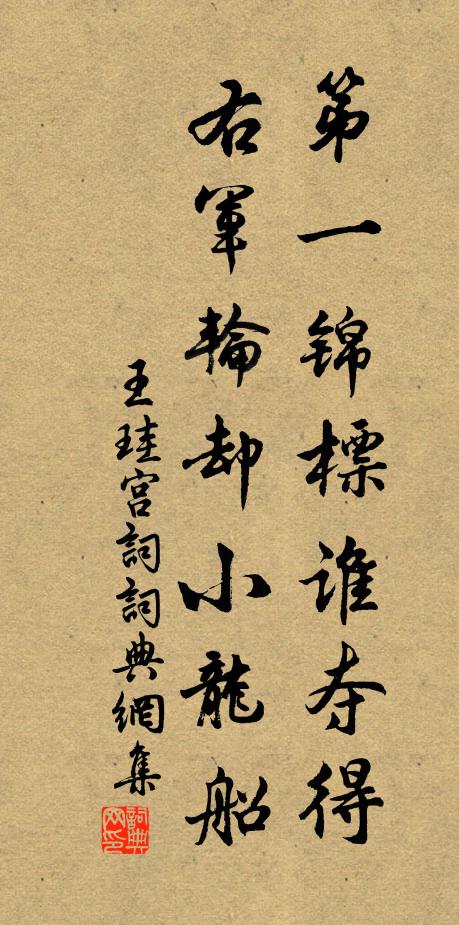 第一锦標谁夺得
右軍輪却小龍船
王珪宫詞詞典網集
詞典网印